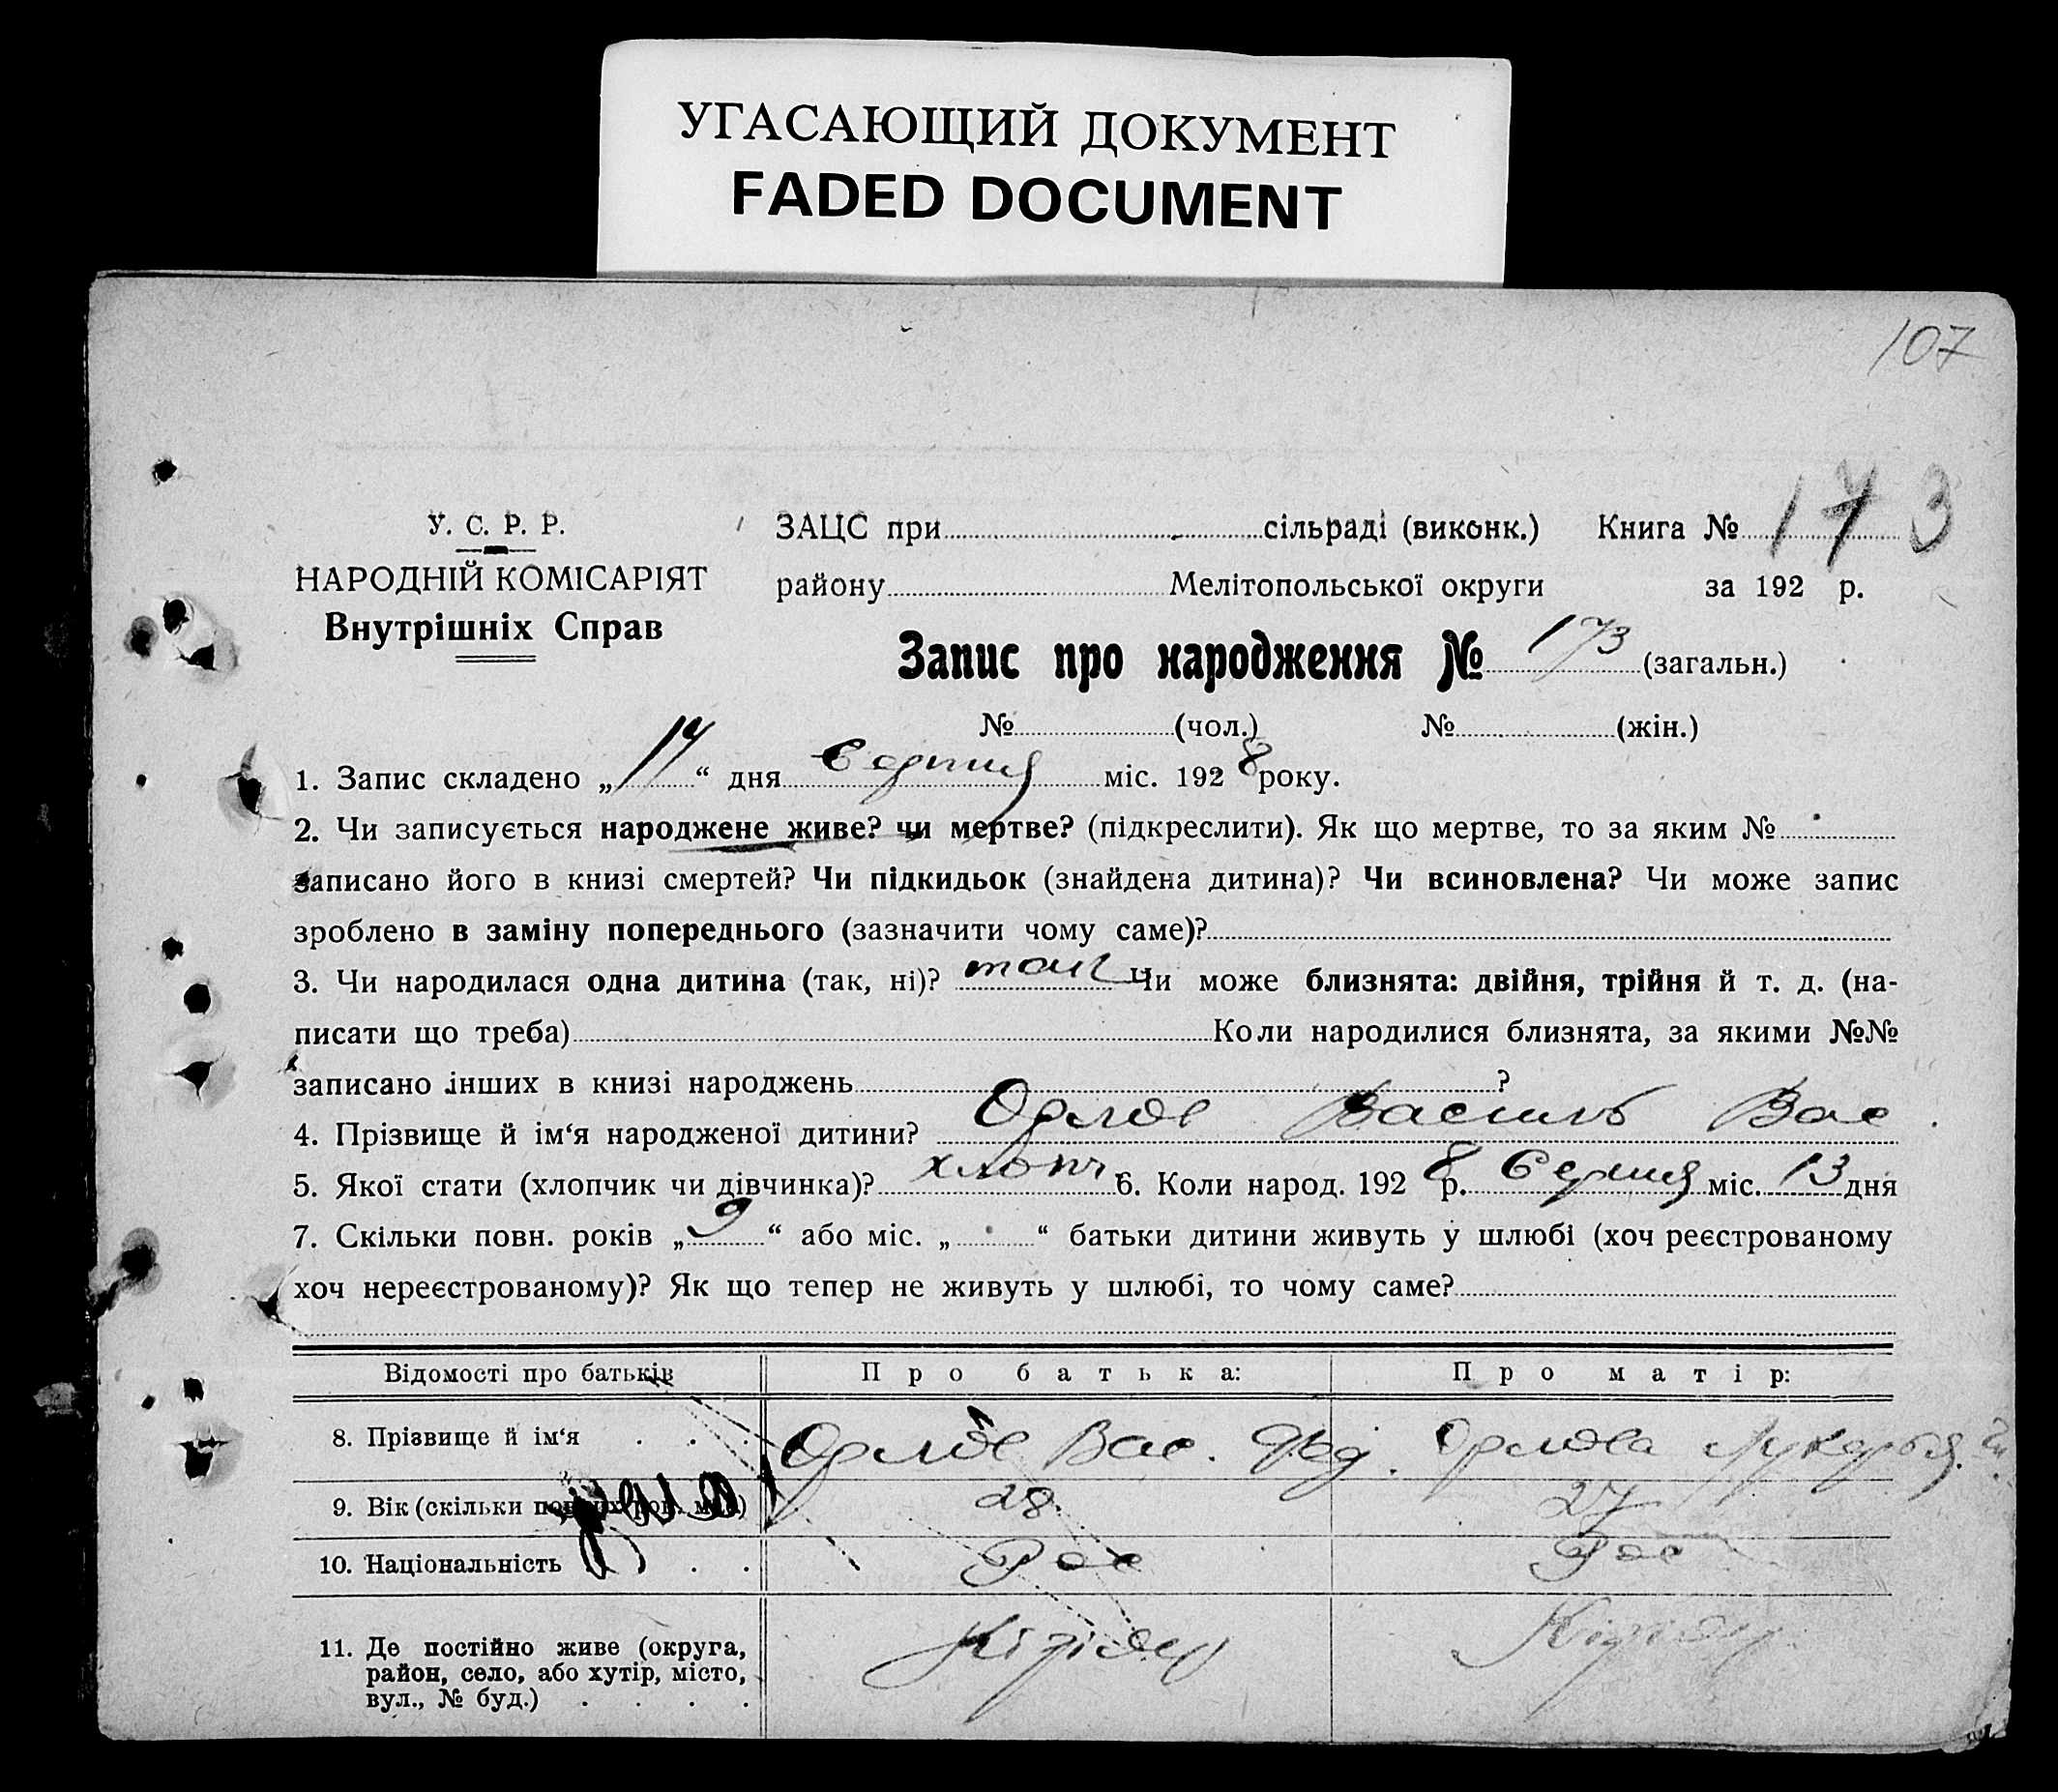 УГАСАЮЩИЙ ДОКУМЕНТ
FADED DOCUMENT
107
У. С. Р. Р.
НАРОДНІЙ КОМІСАРІЯТ
Внутрішніх Справ
ЗАЦС при сільраді (виконк.) Книга № 173
району Мелітопольської округи за 192 р.
Запис про народження № 173 (загальн.)
№ (чол.) № (жін.)
1. Запис складено „17“ дня Серпня міс. 1928 року.
2. Чи записується народжене живе? чи мертве? (підкреслити). Як що мертве, то за яким №
записано його в книзі смертей? Чи підкидьок (знайдена дитина)? Чи всиновлена? Чи може запис
зроблено в заміну попереднього (зазначити чому саме)?
3. Чи народилася одна дитина (так, ні)? так Чи може близнята: двійня, трійня й т. д. (на-
писати що треба) Коли народилися близнята, за якими №№
записано інших в книзі народжень ?
4. Прізвище й ім‘я народженої дитини? Орлов Василь Вас.
5. Якої стати (хлопчик чи дівчинка)? хлопч 6. Коли народ. 1928 р. Серпня міс. 13 дня
7. Скільки повн. років „9“ або міс. „ “ батьки дитини живуть у шлюбі (хоч реєстрованому
хоч нереєстрованому)? Як що тепер не живуть у шлюбі, то чому саме?
Відомості про батьків Про батька: Про матір:
8. Прізвище й ім‘я . . . Орлов Вас. Фед. Орлова Лукерья
9. Вік (скільки повних рок. міс.) 28 27
10. Національність . . Рос Рос
11. Де постійно живе (округа,
район, село, або хутір, місто,
вул., № буд.) . . . .